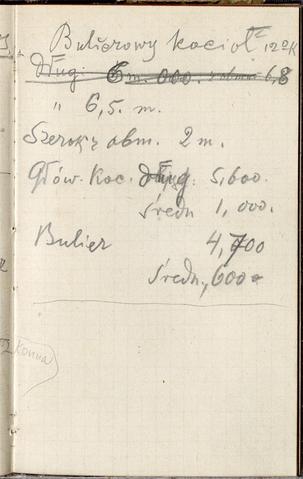 Bulierowy kocioł 12 ak
Dług. 6 m. 000. z obm. 6,8
" 6,5. m.
Szerok z obm. 2 m.
Głów. Koc. dług. 5,600.
średn 1,000.
Bulier 4,700
średn, 600
Konna